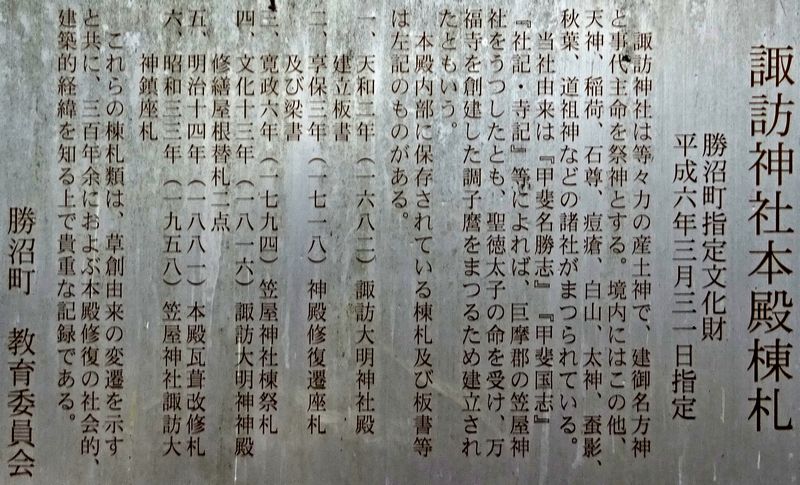 諏訪神社本殿棟札
勝沼町指定文化財
平成六年三月三一日指定
諏訪神社は等々力の産土神で、建御名方神
と事代主命を祭神とする。境内にはこの他、
天神、稲荷、石尊、痘瘡、白山、太神、蚕影、
秋葉、道祖神などの諸社がまつられている。
当社由来は『甲斐名勝志』『甲斐国志』
『社記・寺記』等によれば、巨摩郡の笠屋神
社をうつしたとも、聖徳太子の命を受け、万
福寺を創建した調子麿をまつるため建立され
たともいう。
本殿内部に保存されている棟札及び板書等
は左記のものがある。
一、天和二年（一六八二）諏訪大明神社殿
建立板書
二、享保三年（一七一八）神殿修復遷座札
及び梁書
三、寛政六年（一七九四）笠屋神社棟祭札
四、文化十三年（一八一六）諏訪大明神神殿
修繕屋根替札二点
五、明治十四年（一八八一）本殿瓦葺改修札
六、昭和三三年（一九五八）笠屋神社諏訪大
神鎮座札
これらの棟札類は、草創由来の変遷を示す
と共に、三百年余におよぶ本殿修復の社会的、
建築的経緯を知る上で貴重な記録である。
勝沼町　教育委員会